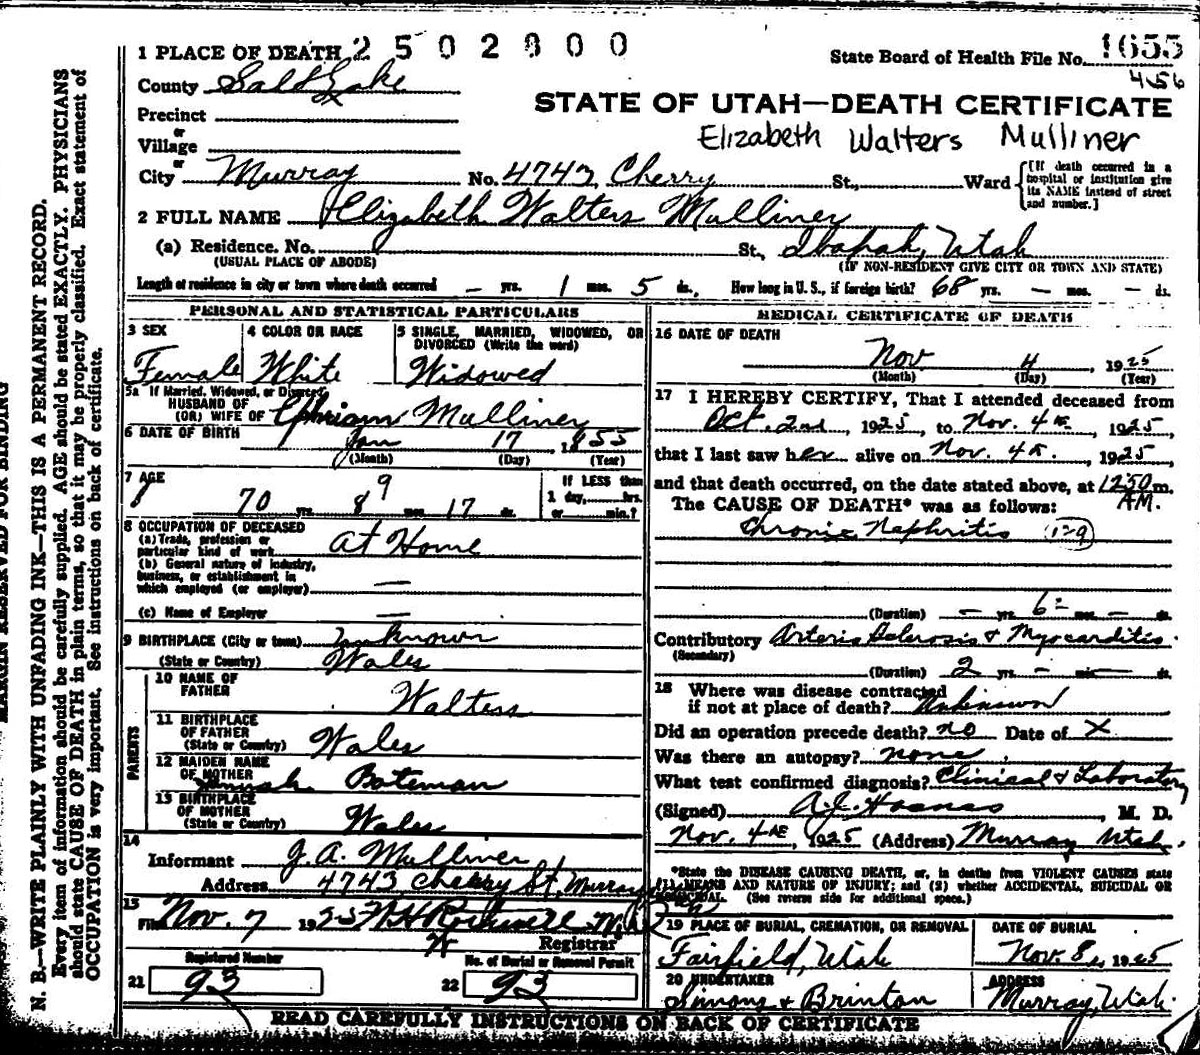 1 PLACE OF DEATH 2502800
State Board of Health File No. 1655
456
County Salt Lake
STATE OF UTAH—DEATH CERTIFICATE
Precinct
or
Village
Elizabeth Walters Mulliner
or
City Murray No. 4743 Cherry St., Ward
[If death occurred in a hospital or institution give its NAME instead of street and number.]
2 FULL NAME Elizabeth Walters Mulliner
(a) Residence. No. St., Ibapah, Utah
(USUAL PLACE OF ABODE) (IF NON-RESIDENT GIVE CITY OR TOWN AND STATE)
Length of residence in city or town where death occurred — yrs. 1 mos. 5 ds. How long in U. S., if foreign birth? 68 yrs. — mos. — ds.
PERSONAL AND STATISTICAL PARTICULARS
3 SEX
Female
4 COLOR OR RACE
White
5 SINGLE, MARRIED, WIDOWED, OR
DIVORCED (Write the word)
Widowed
5a If Married, Widowed, or Divorced
HUSBAND OF
(OR) WIFE OF Ephriam Mulliner
6 DATE OF BIRTH Jan 17 1855
(Month) (Day) (Year)
7 AGE
70 yrs. 8 9 mos. 17 ds.
If LESS than
1 day, hrs.
or min.?
8 OCCUPATION OF DECEASED
(a) Trade, profession or
particular kind of work At Home
(b) General nature of industry,
business, or establishment in
which employed (or employer) —
(c) Name of Employer —
9 BIRTHPLACE (City or town) Unknown
(State or Country) Wales
PARENTS
10 NAME OF
FATHER Walters
11 BIRTHPLACE
OF FATHER
(State or Country) Wales
12 MAIDEN NAME
OF MOTHER Bateman
13 BIRTHPLACE
OF MOTHER
(State or Country) Wales
14
Informant J. A. Mulliner
Address 4743 Cherry St. Murray
15
Filed Nov. 7 1925
Registrar
Registered Number
21 93
No. of Burial or Removal Permit
22 93
MEDICAL CERTIFICATE OF DEATH
16 DATE OF DEATH
Nov 4 1925
(Month) (Day) (Year)
17 I HEREBY CERTIFY, That I attended deceased from
Oct. 2nd, 1925, to Nov. 4th, 1925,
that I last saw her alive on Nov. 4th, 1925,
and that death occurred, on the date stated above, at 1250 m.
AM.
The CAUSE OF DEATH* was as follows:
Chronic Nephritis 129
(Duration) — yrs. 6 mos. — ds.
Contributory Arterio Sclerosis & Myocarditis
(Secondary)
(Duration) 2 yrs. — mos. — ds.
18 Where was disease contracted
if not at place of death? Unknown
Did an operation precede death? no Date of X
Was there an autopsy? none
What test confirmed diagnosis? Clinical & Laboratory
(Signed) , M. D.
Nov. 4th, 1925 (Address) Murray Utah.
*State the DISEASE CAUSING DEATH, or, in deaths from VIOLENT CAUSES state
(1) MEANS AND NATURE OF INJURY; and (2) whether ACCIDENTAL, SUICIDAL OR
HOMICIDAL. (See reverse side for additional space.)
19 PLACE OF BURIAL, CREMATION, OR REMOVAL
Fairfield, Utah
DATE OF BURIAL
Nov. 8, 1925
20 UNDERTAKER
Simons & Brinton
ADDRESS
Murray, Utah.
READ CAREFULLY INSTRUCTIONS ON BACK OF CERTIFICATE
MARGIN RESERVED FOR BINDING
N. B.—WRITE PLAINLY WITH UNFADING INK—THIS IS A PERMANENT RECORD.
Every item of information should be carefully supplied. AGE should be stated EXACTLY. PHYSICIANS
should state CAUSE OF DEATH in plain terms, so that it may be properly classified. Exact statement of
OCCUPATION is very important. See instructions on back of certificate.